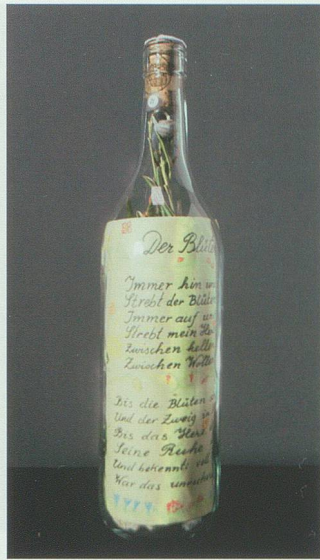 Der Blüte
Immer hin un
Strebt der Blüte
Immer auf un
Strebt mein He
Zwischen hell
Zwischen Wolle
Bis die Blüten
Und der Zweig in
Bis das Herz
Seine Ruhe
Und bekennt: voll
War das unruhe